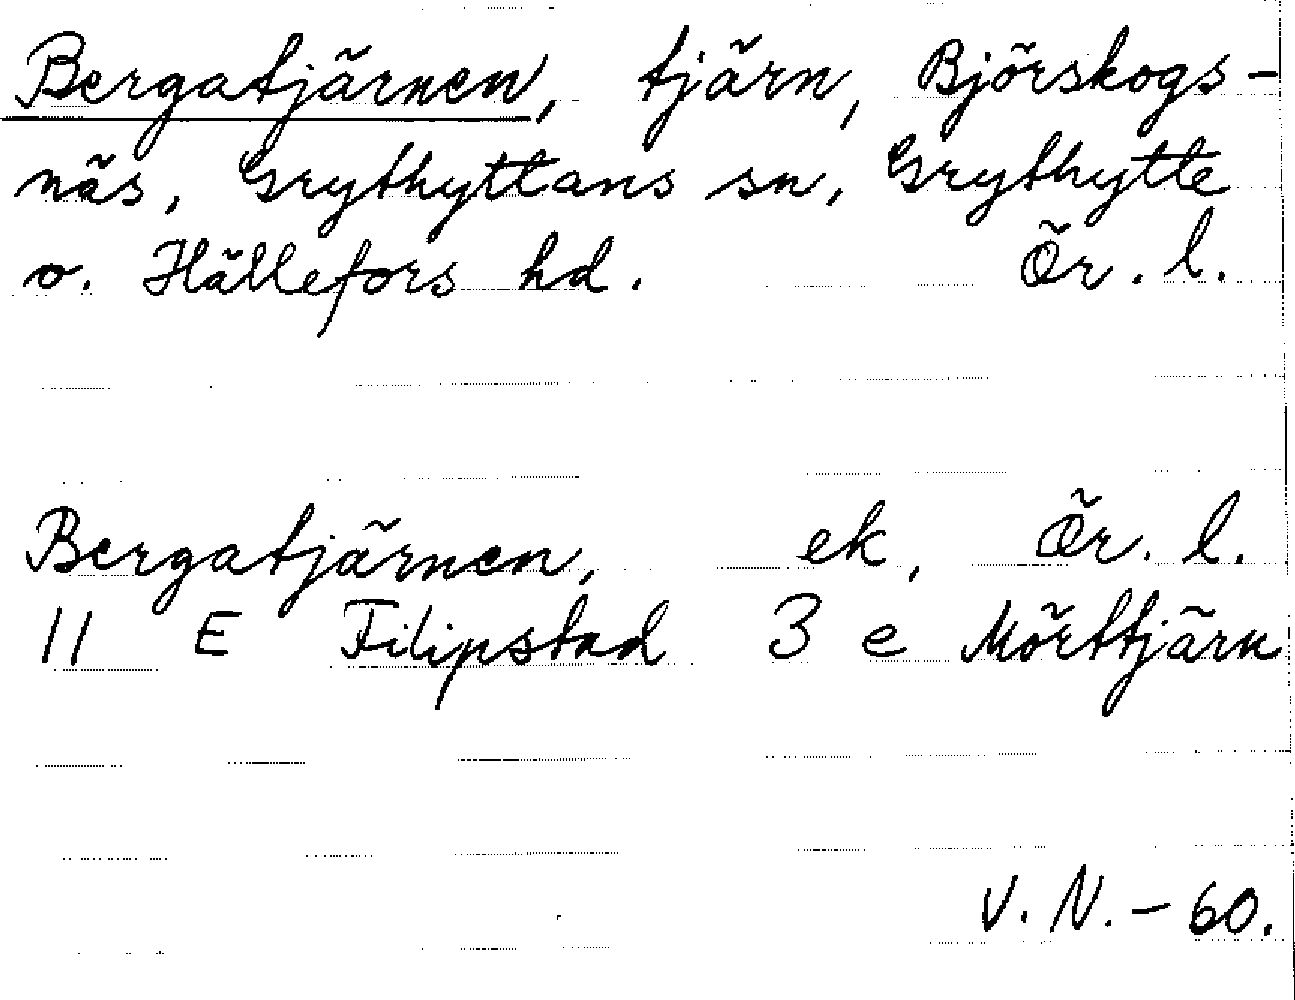 Bergatjärnen, tjärn, Björskogs-
näs, Grythyttans sn, Grythytte
o. Hällefors hd. Ör. l.
Bergatjärnen, ek, Ör. l.
11 E Filipstad 3 e Mörttjärn
V. N. - 60.